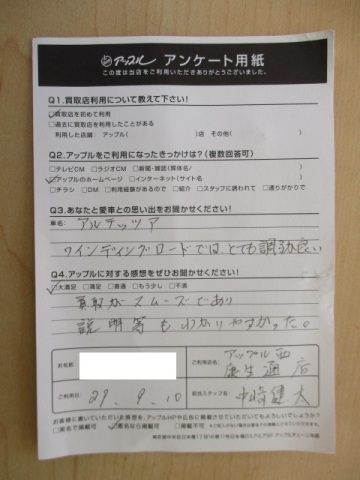 アップル アンケート用紙
この度は当店をご利用いただきありがとうございました。
Q1.買取店利用について教えて下さい!
☑買取店を初めて利用
□過去に買取店を利用したことがある
利用した店舗: アップル( )店 その他( )
Q2.アップルをご利用になったきっかけは?(複数回答可)
□テレビCM □ラジオCM □新聞・雑誌(媒体名/ )
☑アップルのホームページ □インターネット(サイト名 )
□チラシ □DM □利用経験があるので □紹介 □スタッフに誘われて □通りがかりで
Q3.あなたと愛車との思い出をお聞かせください!
車名:
アルテッツア
ワインディングロードでは、とても調子良い
Q4.アップルに対する感想をぜひお聞かせください!
☑大満足 □満足 □普通 □もう少し □不満
買取がスムーズであり
説明等もわかりやすかった。
お名前:
ご利用店名: アップル西
康生通店
ご利用日: 29. 9. 10
担当スタッフ名: 中崎健太
お客様に書いていただいた感想を、アップルHPや広告に掲載させていただいてもよろしいでしょうか?
□実名で掲載可 ☑匿名なら掲載可